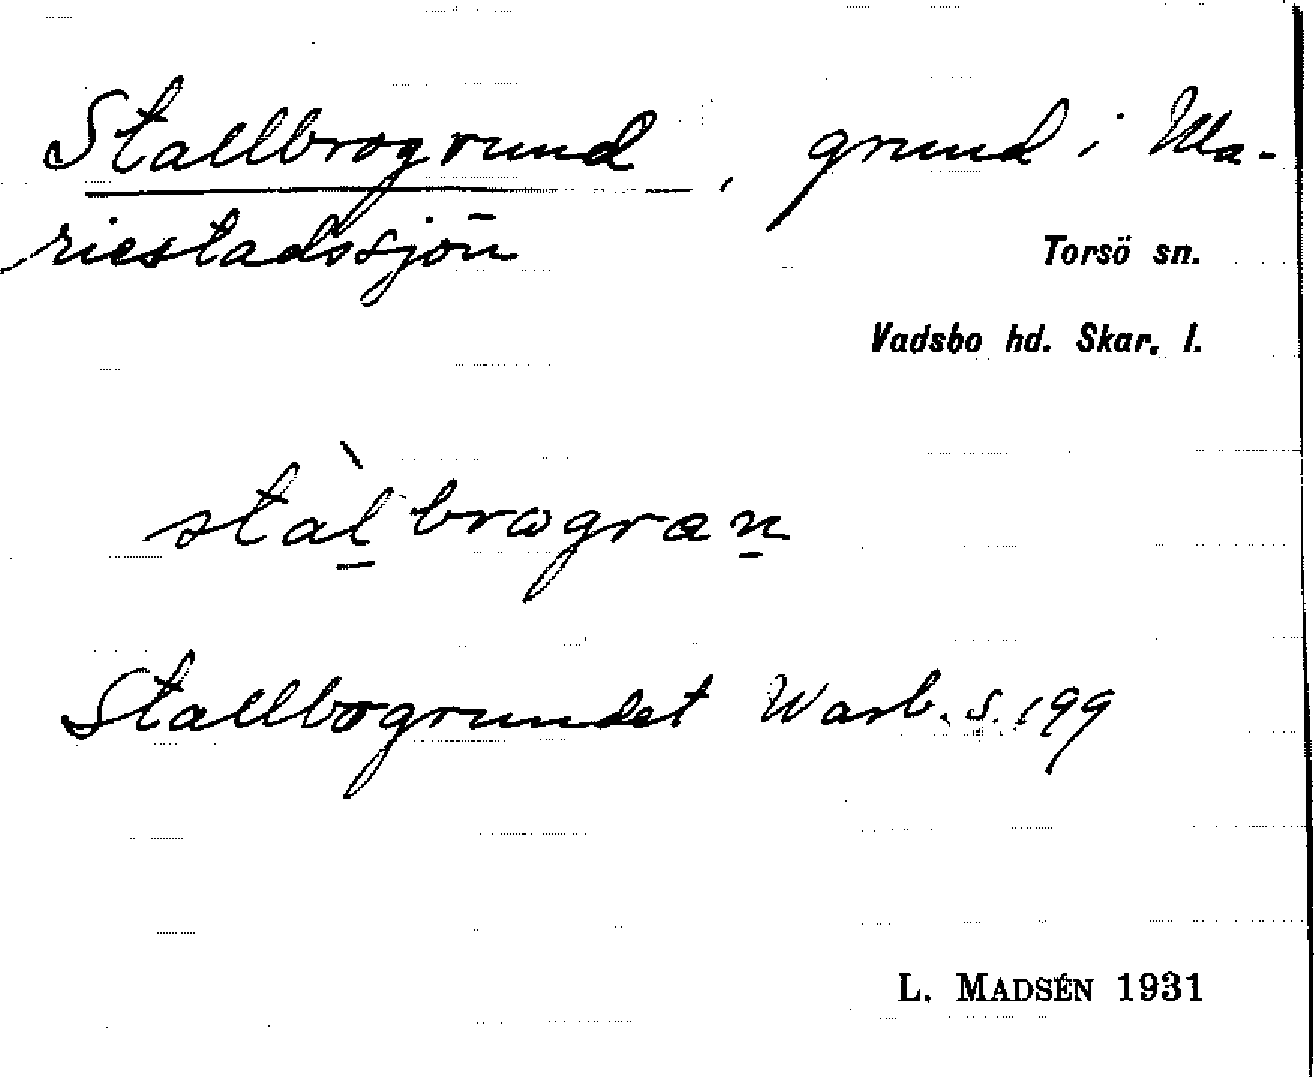 Stallbrogrund, grund i Ma-
riestadssjön
Torsö sn.
Vadsbo hd. Skar. l.
stàl̲brogræn̲
Stallbogrundet Warb. s. 199
L. MADSÉN 1931